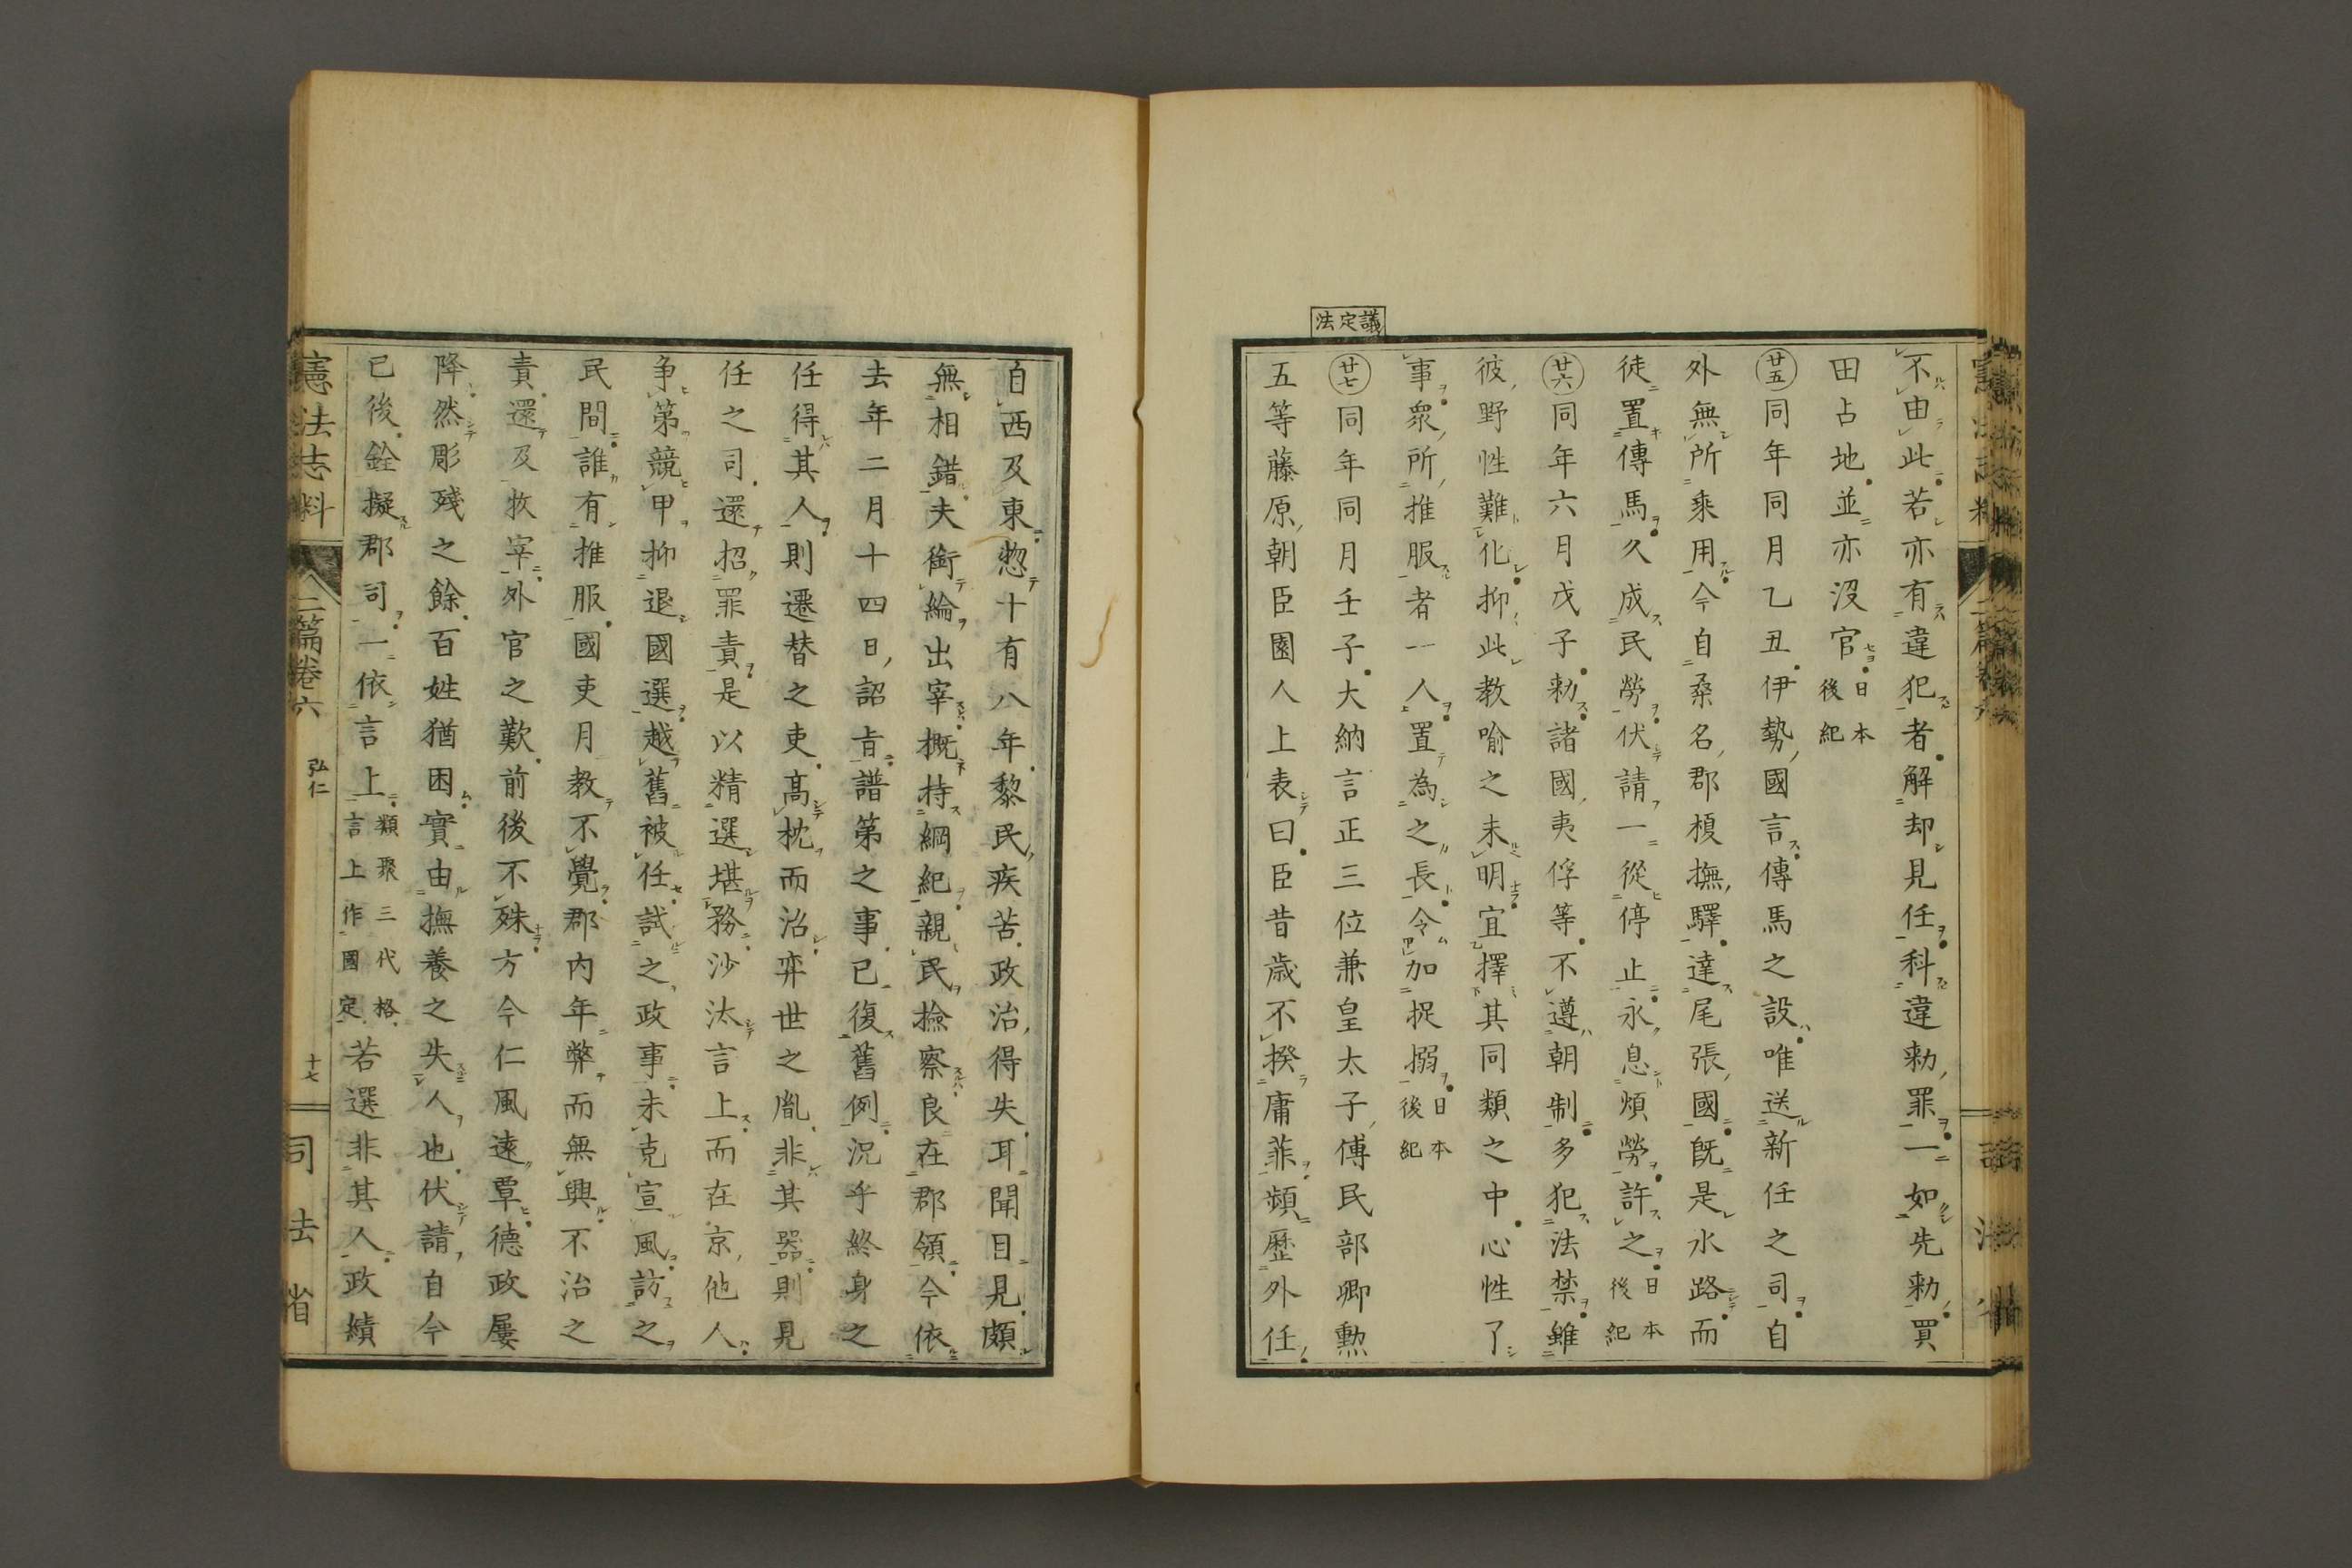 不由此若亦有違犯者解却見任科違勅罪一如先勅買
田占地並亦沒官日本後紀
廿五同年同月乙丑伊勢國言傳馬之設唯送新任之司自
外無所乘用今自桑名郡榎撫驛達尾張國既是水路而
徒置傳馬久成民勞伏請一從停止永息煩勞許之日本後紀
廿六同年六月戊子勅諸國夷俘等不遵朝制多犯法禁雖
彼野性難化抑此教喻之未明宜擇其同類之中心性了
事衆所推服者一人置為之長令加捉搦日本後紀
議定法
廿七同年同月壬子大納言正三位兼皇太子傅民部卿勲
五等藤原朝臣園人上表曰臣昔歳不揆庸菲頻歷外任
自西及東惣十有八年黎民疾苦政治得失耳聞目見頗
無相錯夫銜綸出宰概持綱紀親民撿察良在郡領今依
去年二月十四日詔旨譜第之事已復舊例況乎終身之
任得其人則遷替之吏高枕而治弈世之胤非其器則見
任之司還招罪責是以精選堪務沙汰言上而在京他人
争第競甲抑退國選越舊被任試之政事未克宣風訪之
民間誰有推服國吏月教不覺郡内年弊而無興不治之
責還及牧宰外官之歎前後不殊方今仁風遠覃德政屢
降然彫殘之餘百姓猶困實由撫養之失人也伏請自今
已後銓擬郡司一依言上類聚三代格言上作國定若選非其人政績
憲法志料 二篇卷六 弘仁 十七 司法省